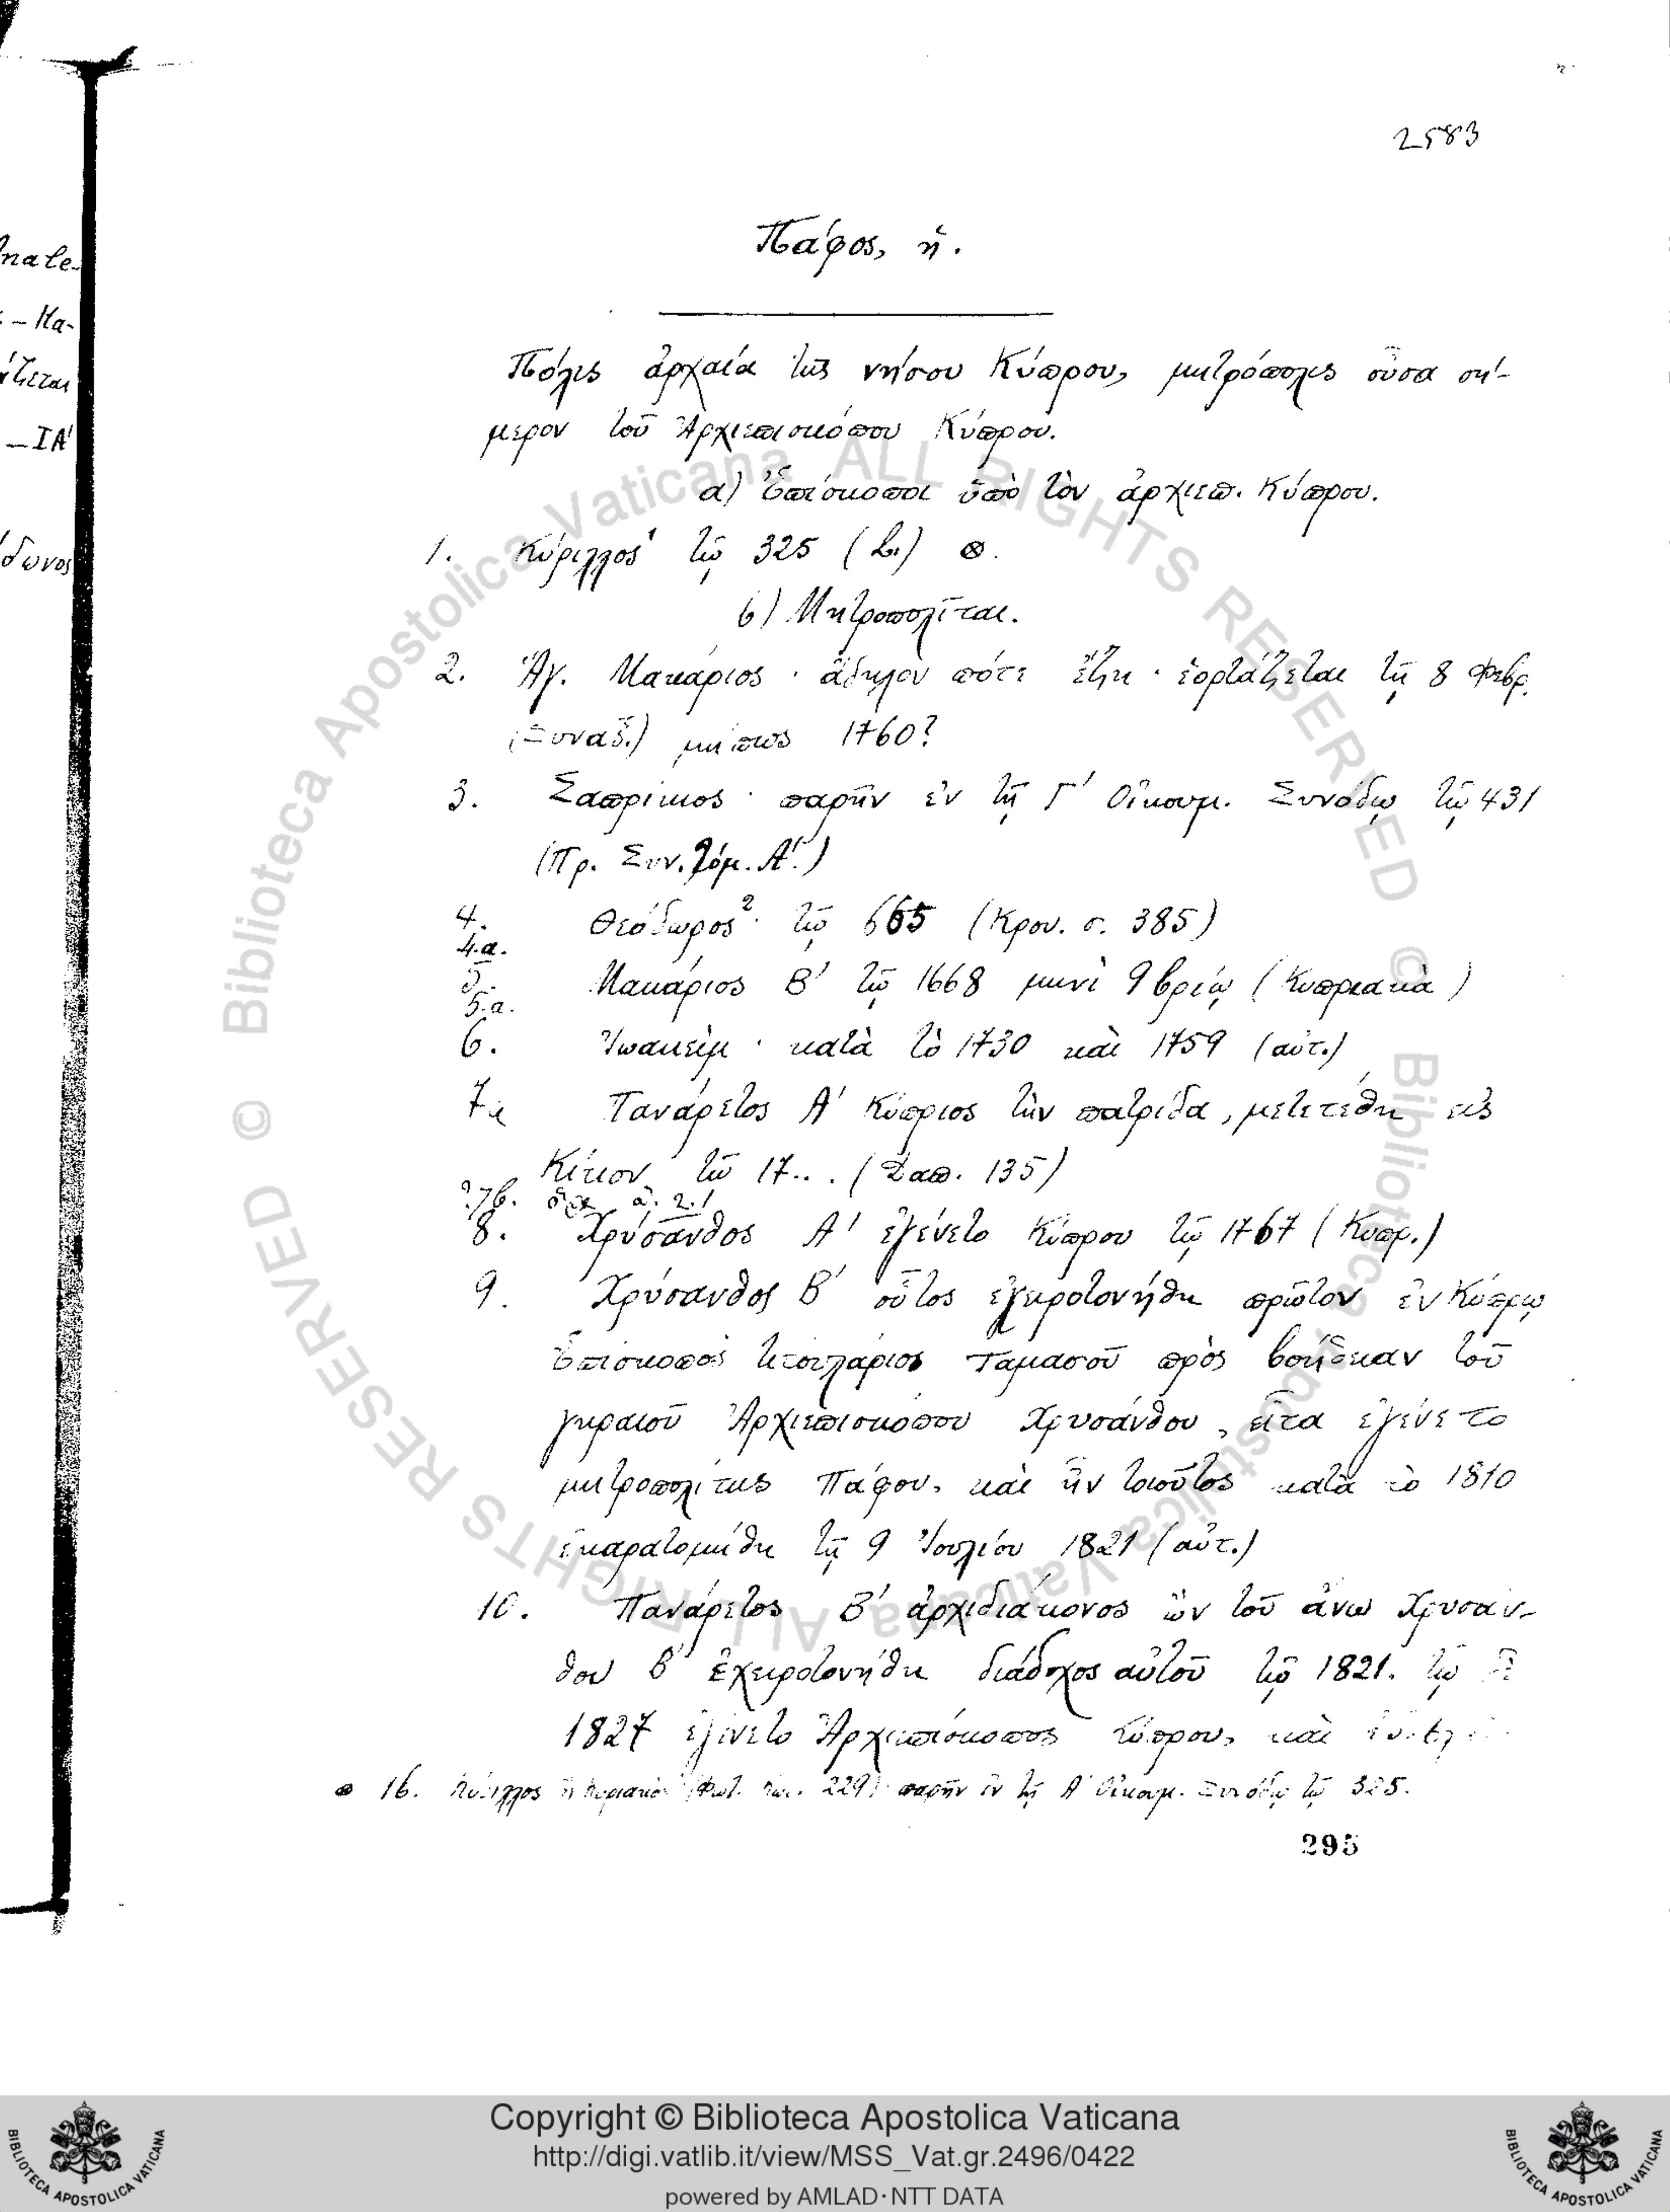 2583
Πάφος, ἡ.
Πόλις ἀρχαία τῆς νήσου Κύπρου, μητρόπολις οὖσα σή-
μερον τοῦ Ἀρχιεπισκόπου Κύπρου.
α) Ἐπίσκοποι ὑπὸ τὸν ἀρχιεπ. Κύπρου.
1. Κύριλλος¹ τῷ 325 ⊗.
β) Μητροπολῖται.
2. Ἅγ. Μακάριος · ἄδηλον πότε ἔζη · ἑορτάζεται τῇ 8 Φεβρ.
(Συναξ.) μήπως 1760?
3. Σαπρίκιος · παρῆν ἐν τῇ Γ' Οἰκουμ. Συνόδῳ τῷ 431
(Πρ. Συν. τόμ. Α'.)
4. Θεόδωρος² · τῷ 665 (Κρου. σ. 385)
4.α.
5. Μακάριος Β' τῷ 1668 μηνὶ 9βρίῳ (Κυπριακὰ)
5.α.
6. Ἰωακεὶμ · κατὰ τὸ 1730 καὶ 1759 (αὐτ.)
7α Πανάρετος Α' Κύπριος τὴν πατρίδα, μετετέθη εἰς
Κίτιον τῷ 17.. . (Σαπ. 135)
?7β. ὅρα ἀ. 2.!
8. Χρύσανθος Α' ἐγένετο Κύπρου τῷ 1767 (Κυπρ.)
9. Χρύσανθος Β' οὗτος ἐχειροτονήθη πρῶτον ἐν Κύπρῳ
Ἐπίσκοπος τιτουλάριος Ταμασοῦ πρὸς βοήθειαν τοῦ
γηραιοῦ Ἀρχιεπισκόπου Χρυσάνθου, εἶτα ἐγένετο
μητροπολίτης Πάφου, καὶ ἦν τοιοῦτος κατὰ τὸ 1810
ἐκαρατομήθη τῇ 9 Ἰουλίου 1821 (αὐτ.)
10. Πανάρετος Β' ἀρχιδιάκονος ὢν τοῦ ἄνω Χρυσάν-
θου β' ἐχειροτονήθη διάδοχος αὐτοῦ τῷ 1821. τῷ
1827 ἐγένετο Ἀρχιεπίσκοπος Κύπρου, καὶ
16. Κύριλλος ἢ Κυριακὸς 229) παρῆν ἐν τῇ Α' Οἰκουμ. Συνόδῳ τῷ 325.
295
nale-
- Κα-
-ΙΑ'
© Biblioteca Apostolica Vaticana ALL RIGHTS RESERVED
© Biblioteca Apostolica Vaticana ALL RIGHTS RESERVED
Copyright © Biblioteca Apostolica Vaticana
http://digi.vatlib.it/view/MSS_Vat.gr.2496/0422
powered by AMLAD·NTT DATA
BIBLIOTECA APOSTOLICA VATICANA
BIBLIOTECA APOSTOLICA VATICANA